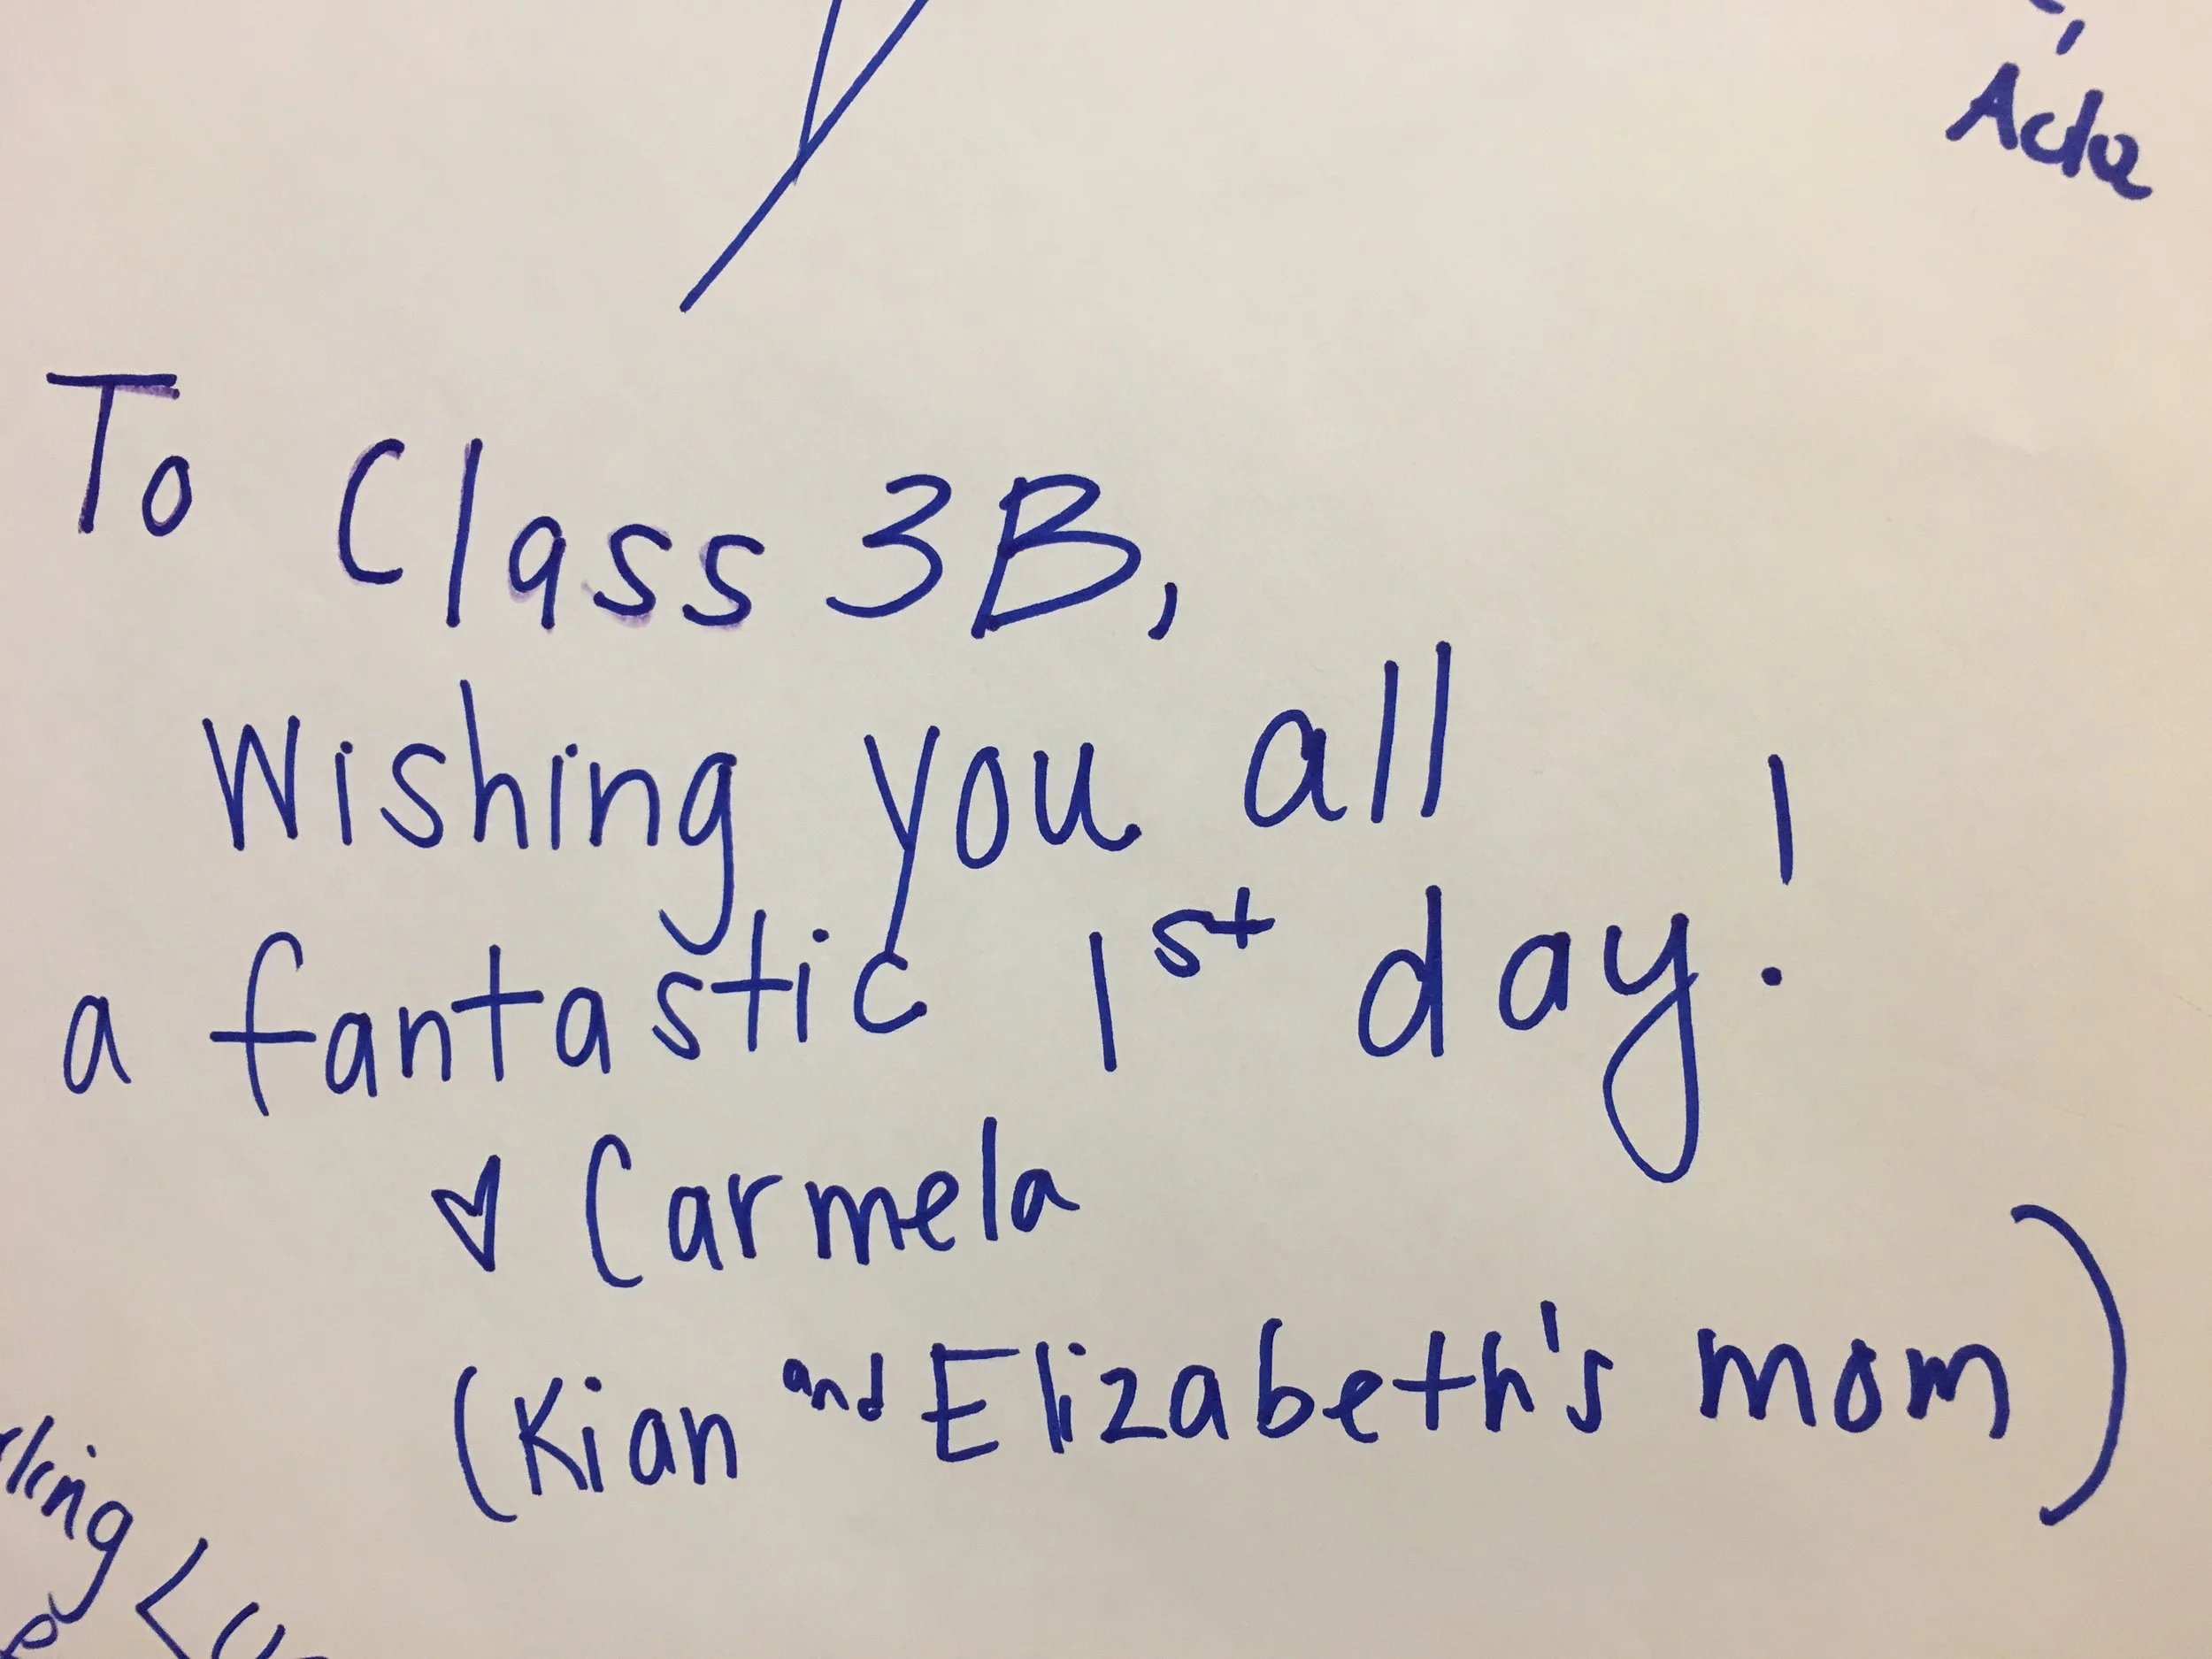 To Class 3B,
Wishing you all
a fantastic 1st day!
♥ Carmela
(Kian and Elizabeth's mom)